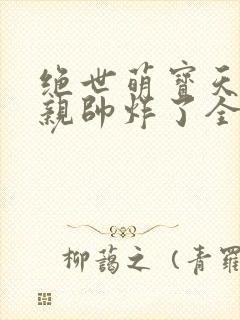 绝世萌寶天
親帥炸了全
柳藹之 (青羅